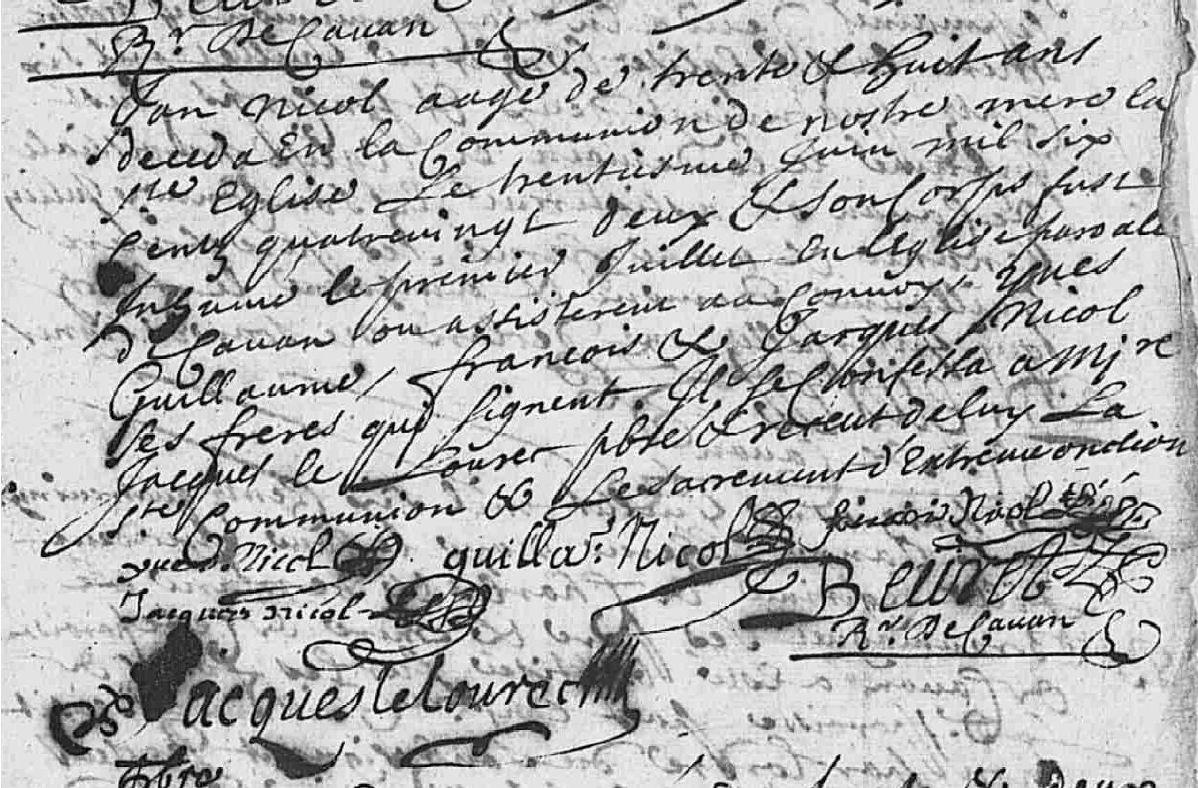 Rr De Cavan
Jan Nicol aagé de trente & huit ans
deceda En la Communion de nostre mere la
ste Eglise Le trentiesme Juin mil six
Centz quatrevingt deux & son Corps fust
Inhumé le premier Juillet En l'Eglise paroale
de Cavan ou assisterent au Convoy, Yves
Guillaume, francois & Jacques Nicol
ses freres qui signent. Il se Confessa a Mire
Jacques le Lourec pbre & receut de luy La
ste Communion & Le sacrement d'Extreme onction
yues Nicol guillar. Nicol francois Nicol
Jacques Nicol Beuret
Rr. De Cavan
Jacques le Lourec
pbre